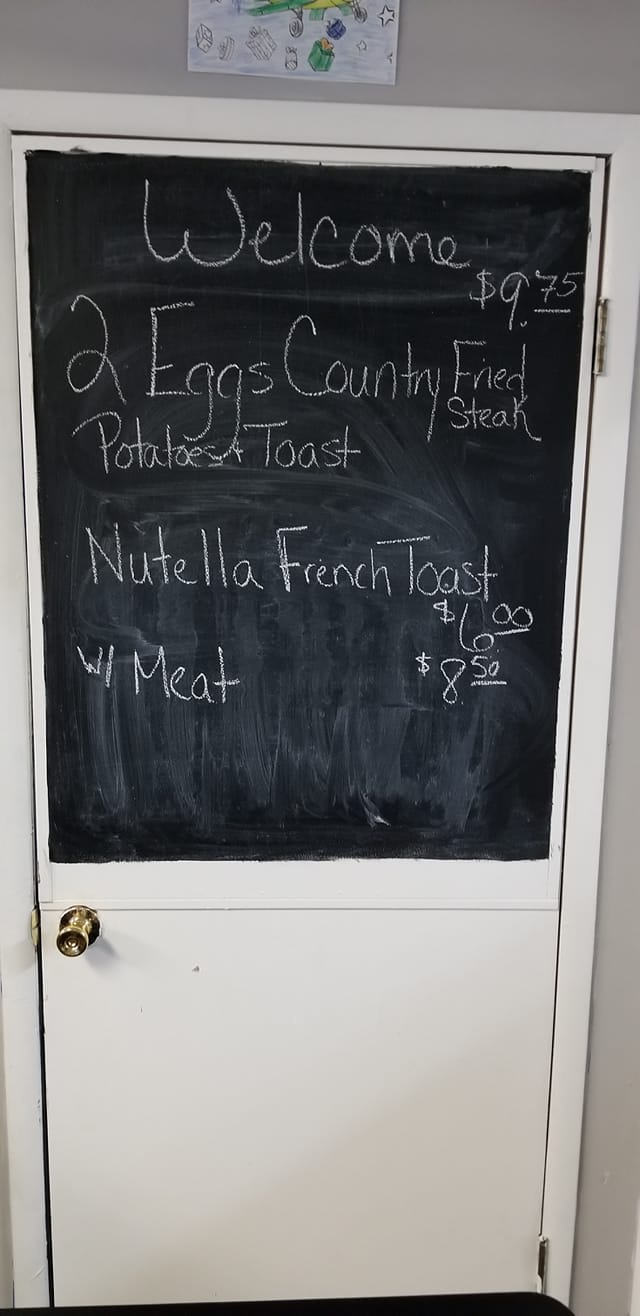 Welcome
$9.75
2 Eggs Country Fried
Steak
Potatoes + Toast
Nutella French Toast
$6.00
w/ Meat $8.50